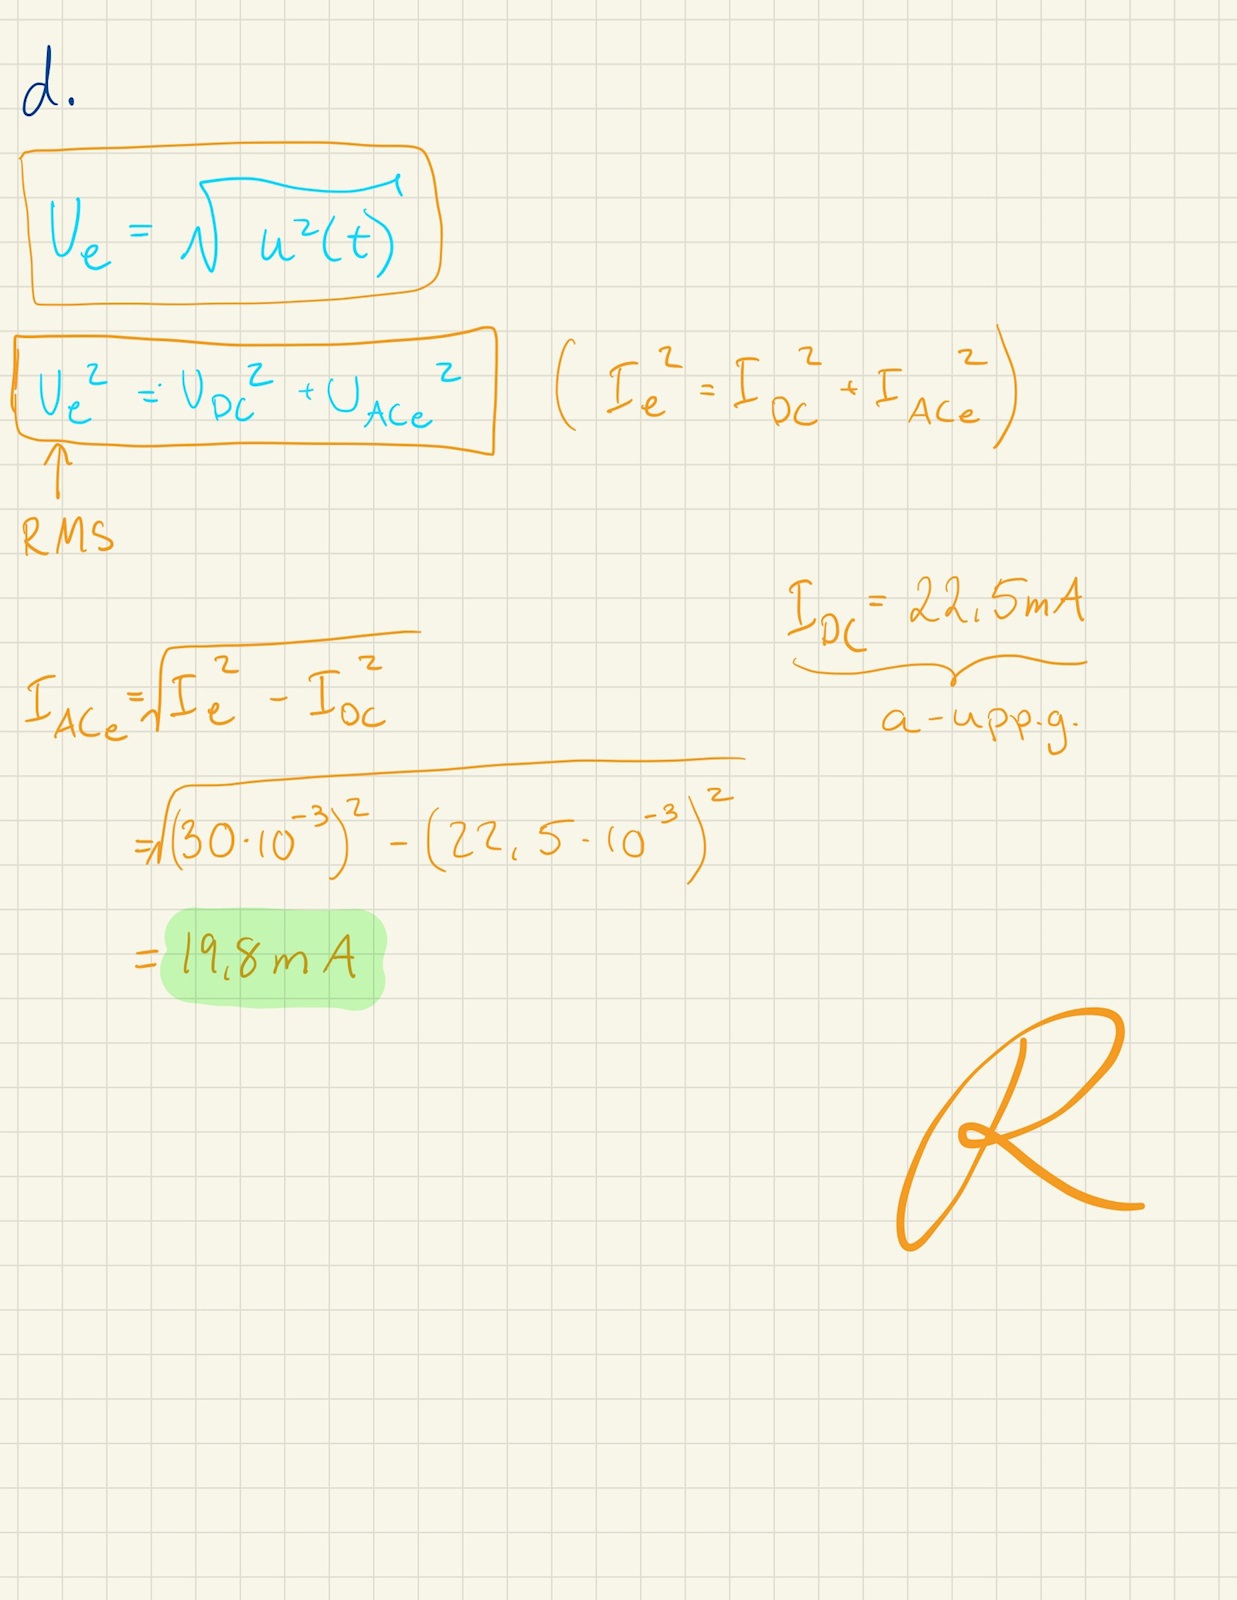 d.
U_e = √u²(t)
U_e² = U_DC² + U_ACe² (I_e² = I_DC² + I_ACe²)
↑
RMS
I_DC = 22,5mA
a-uppg.
I_ACe = √I_e² - I_DC²
= √(30·10⁻³)² - (22,5·10⁻³)²
= 19,8 mA
R